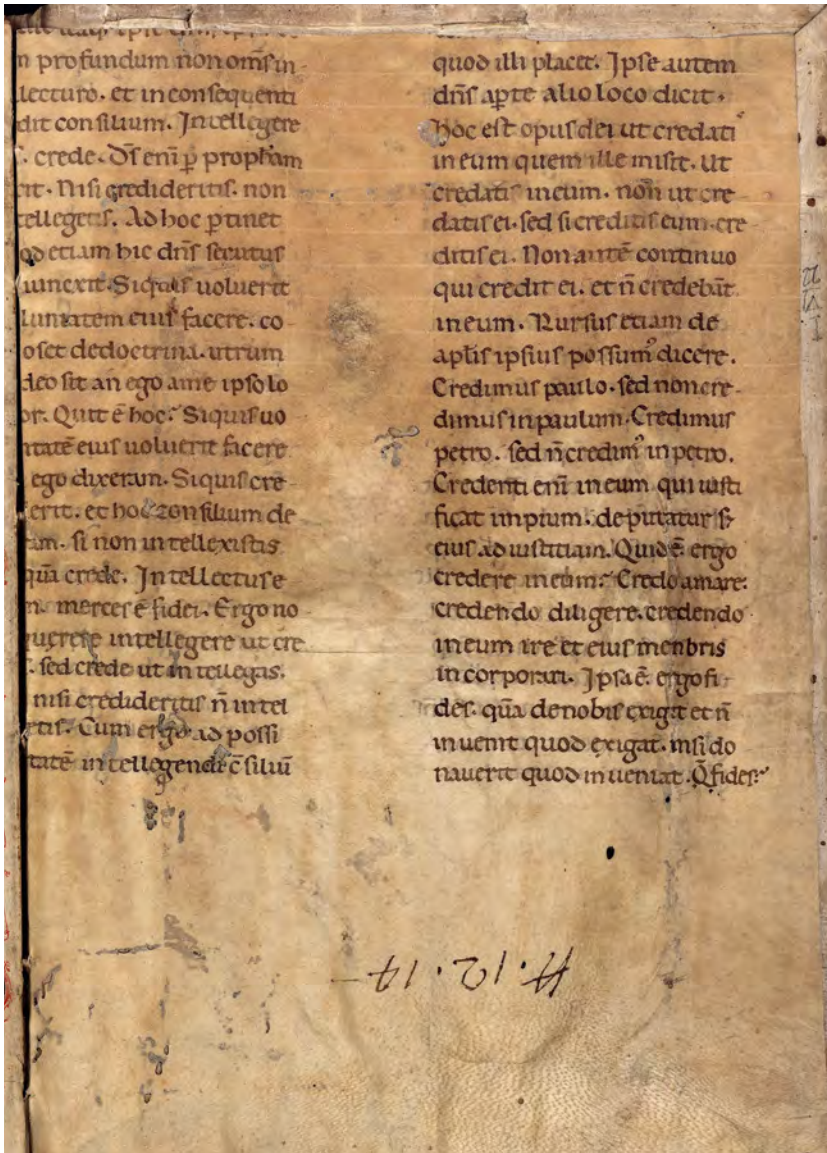 n profundum non om̅s in-
lecturo. et in consequenti
dit consilium. Intellegere
. crede. D̅s eni̅ p̲ propham
rit. Nisi credideritis. non
tellegetis. Ad hoc p̲tinet
od etiam hic dn̅s secutus
iunxerit. Siquis uoluerit
luntatem eius facere. co-
oscet dedoctrina. utrum
deo sit an ego a me ipso lo
or. Quit e̅ hoc. Siquis uo
ntate̅ eius uoluerit facere
ego dixeram. Siquis cre-
erit. et hoc consilium de
am. si non intellexistis
qua̅ crede. Intellectus e
n. merces e̅ fidei. Ergo no
querere intellegere ut cre
. sed crede ut intellegas.
nisi credideritis n̅ intel
etis. Cum ergo ad possi
tate̅ intellegendi c̅siliu̅
quod illi placet. Ipse autem
dn̅s ap̲te alio loco dicit.
hoc est opus dei ut credatiꝰ
in eum quem ille misit. Ut
credatis in eum. non ut cre
datis ei. sed si creditis eum. cre
ditis ei. Non aute̅ continuo
qui credit ei. et n̅ credeba̅t
in eum. Rursus etiam de
apl̅is ipsius possumꝰ dicere.
Credimus paulo. sed non cre-
dimus in paulum. Credimus
petro. sed n̅ credimꝰ in petro.
Credenti eni̅ in eum qui iusti
ficat impium. deputatur f-
eius ad iustitiam. Quid e̅ ergo
credere in eum. Credo amare.
credendo diligere. credendo
in eum ire et eius membris
incorporari. Ipsa e̅ ergo fi-
des. qua̅ de nobis exigit et n̅
inuenit quod exigat. nisi do
nauerit quod inueniat. Q̅ fides.
A. 12. 14